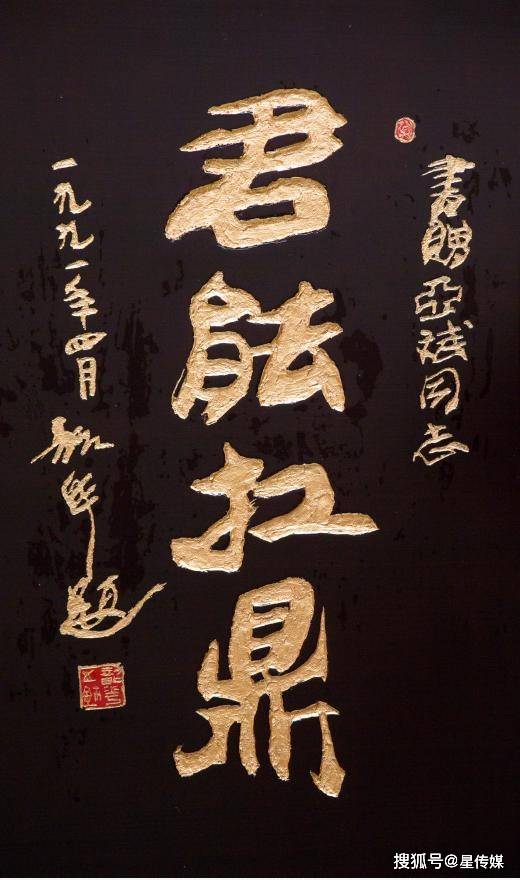 書贈亞斌同志
君能扛鼎
一九九一年四月
題
搜狐号@星传媒